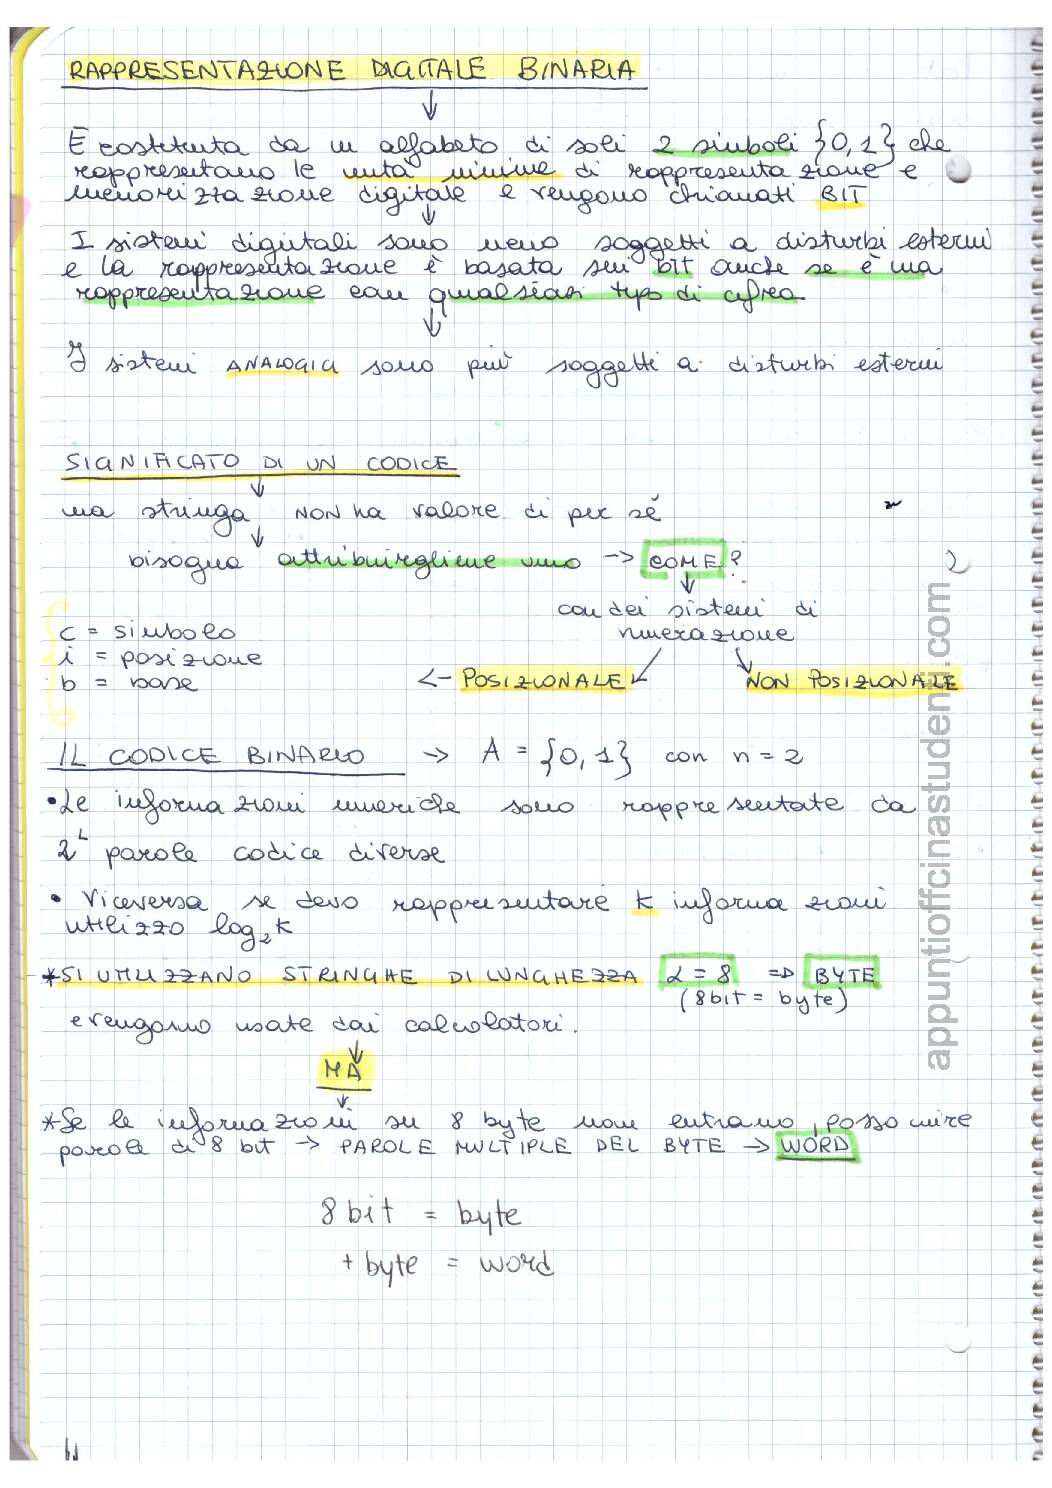 RAPPRESENTAZIONE DIGITALE BINARIA
È costituita da un alfabeto di soli 2 simboli {0,1} che
rappresentano le unità minime di rappresentazione e
memorizzazione digitale e vengono chiamati BIT
I sistemi digitali sono meno soggetti a disturbi esterni
e la rappresentazione è basata sui bit anche se è una
rappresentazione con qualsiasi tipo di cifra.
I sistemi ANALOGICI sono più soggetti a disturbi esterni
SIGNIFICATO DI UN CODICE
una stringa NON ha valore di per sé
bisogna attribuirgliene uno → COME?
con dei sistemi di
numerazione
c = simbolo
i = posizione
b = base
<- POSIZIONALE
NON POSIZIONALE
IL CODICE BINARIO → A = {0,1} con n = 2
• Le informazioni numeriche sono rappresentate da
2^L parole codice diverse
• Viceversa se devo rappresentare k informazioni
utilizzo log₂k
*SI UTILIZZANO STRINGHE DI LUNGHEZZA L = 8 => BYTE
(8bit = byte)
e vengono usate dai calcolatori.
MA
*Se le informazioni su 8 byte non entrano, posso unire
parole di 8 bit → PAROLE MULTIPLE DEL BYTE → WORD
8bit = byte
+ byte = word
appuntiofficinastudenti.com